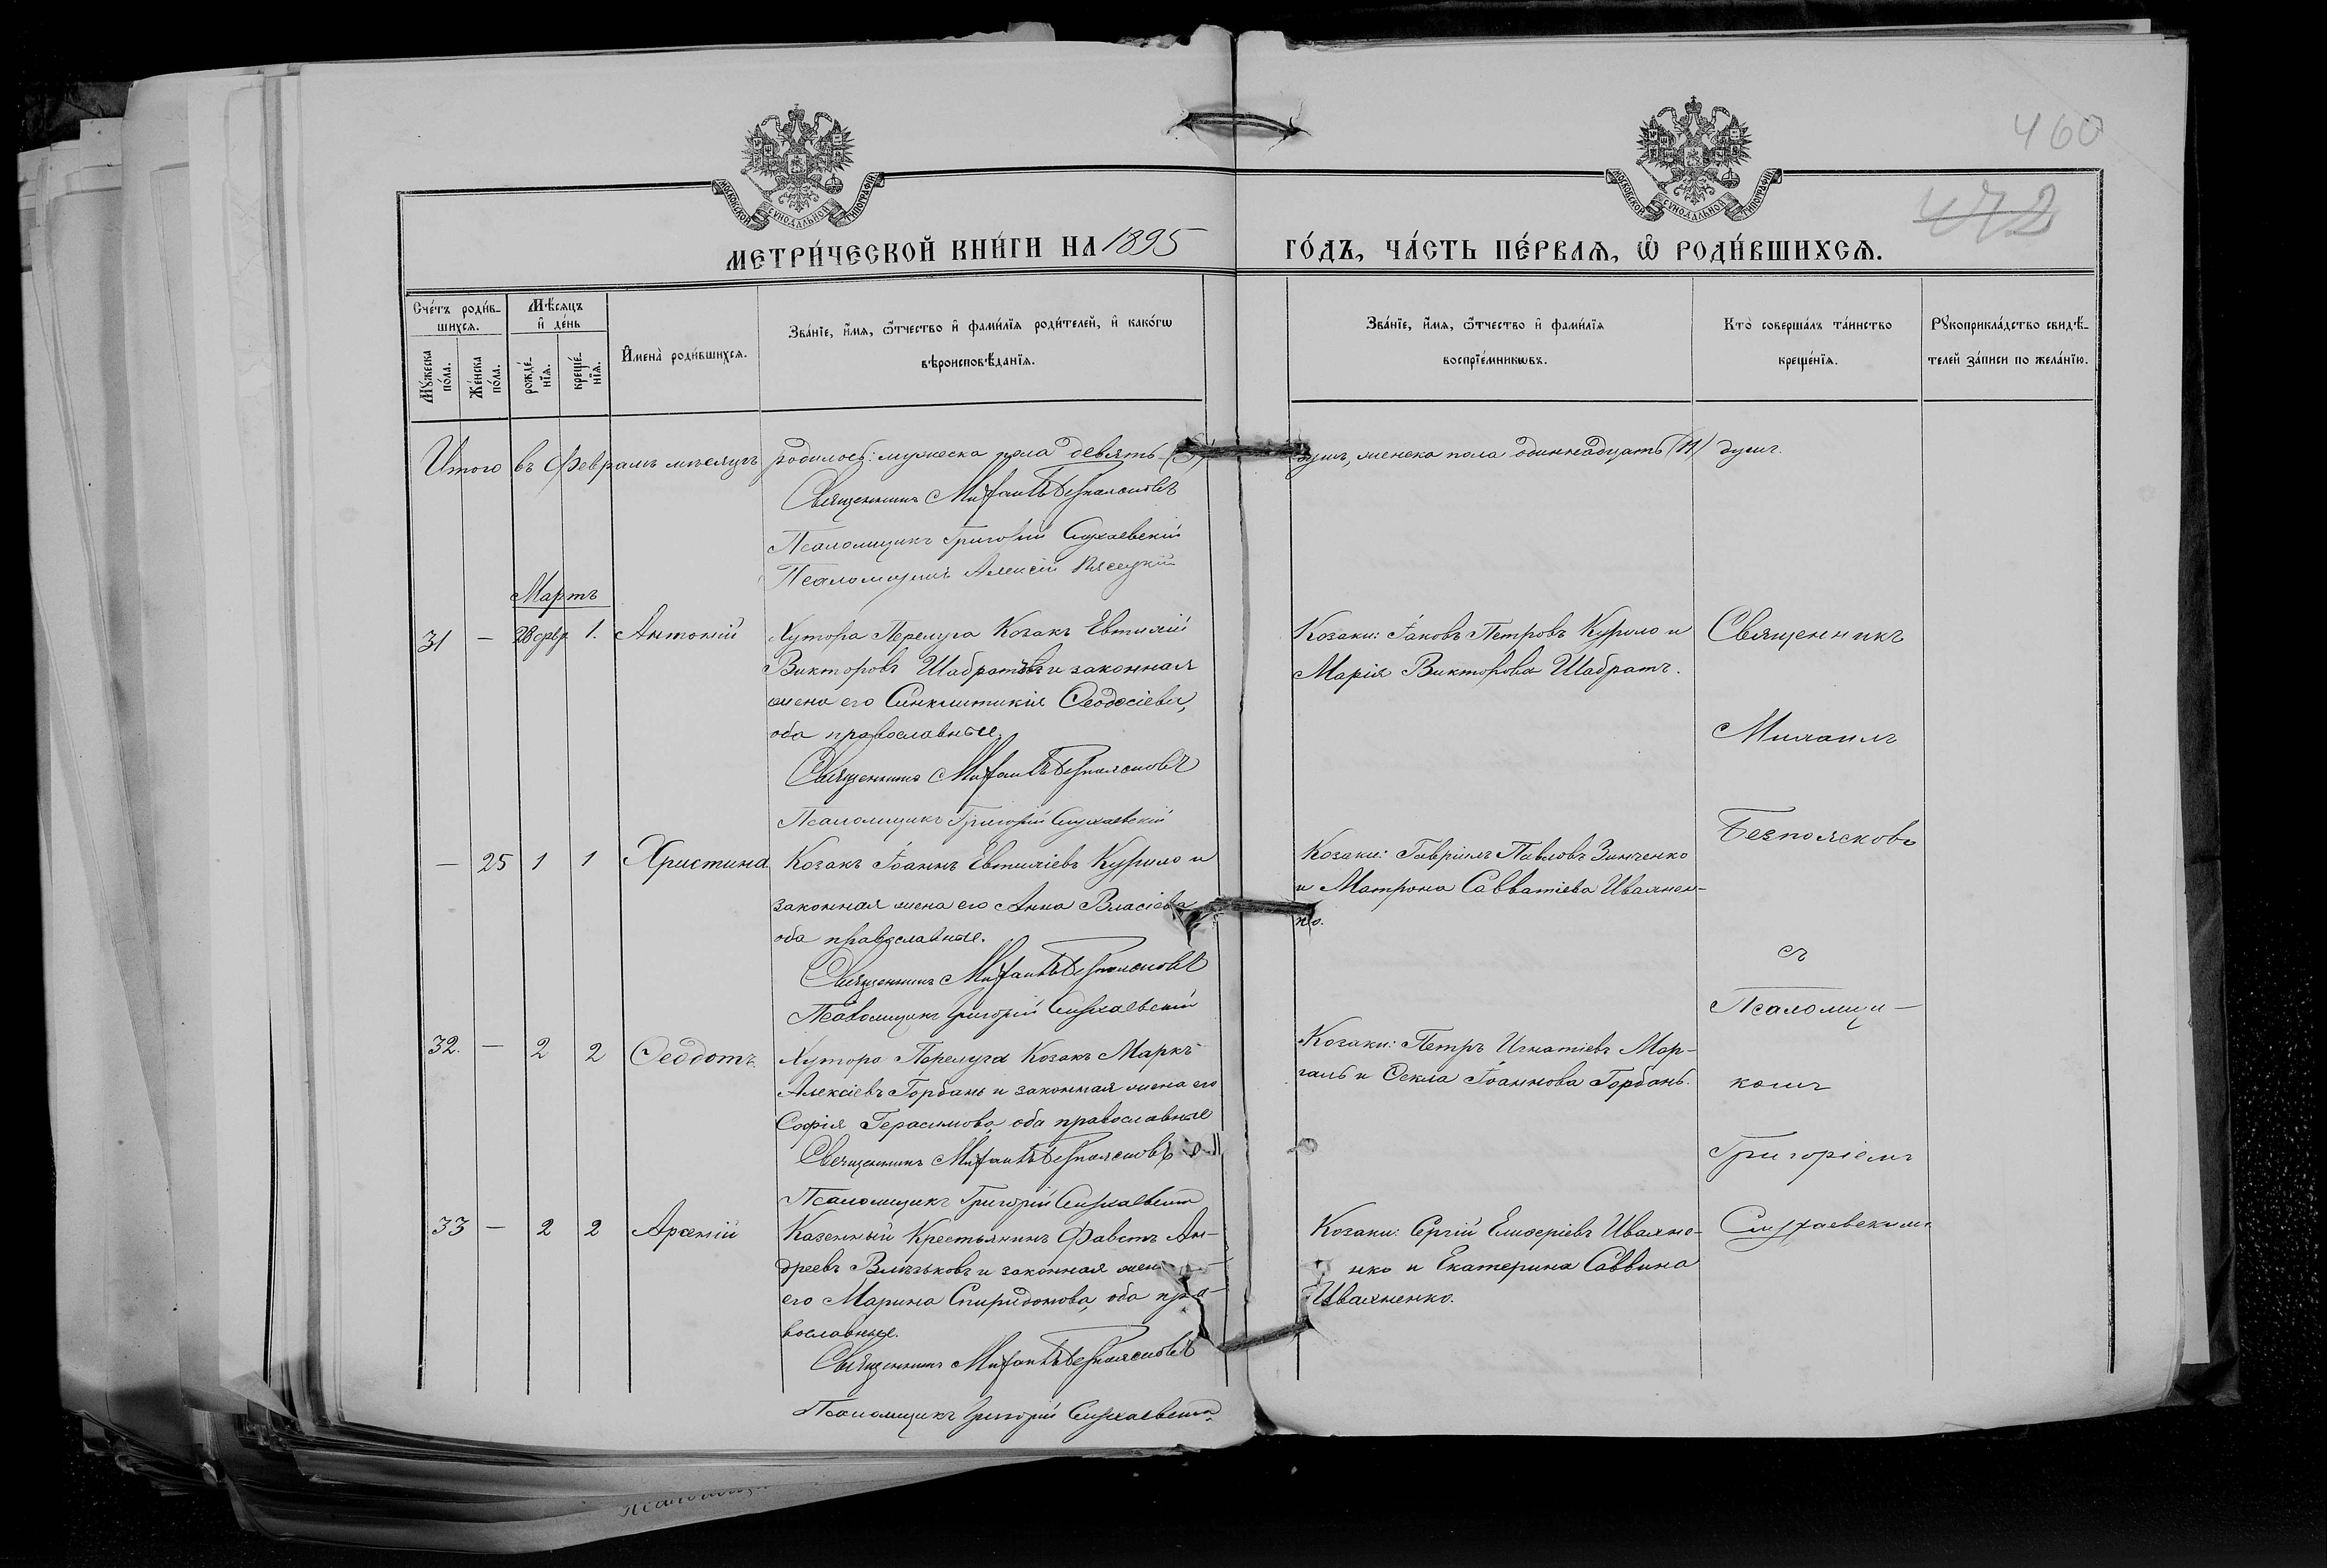 460
472
МОСКОВСКОЙ СѴНОДАЛЬНОЙ ТИПОГРАФІИ
МОСКОВСКОЙ СѴНОДАЛЬНОЙ ТИПОГРАФІИ
МЕТРИ́ЧЕСКОЙ КНИ́ГИ НА 1895 ГО́ДЪ, ЧА́СТЬ ПЕ́РВАѦ, Ѡ҆ РОДИ́ВШИХСѦ.
Сче́тъ роди́в-
шихсѧ.
Мꙋ́жеска
по́ла.
Же́нска
по́ла.
Мѣ́сѧцъ
и҆ де́нь
рожде́-
нїѧ.
креще́-
нїѧ.
И҆мена̀ роди́вшихсѧ.
Зва́нїе, и҆́мѧ, ѻ҆́тчество и҆ фами́лїѧ роди́телей, и҆ како́гѡ
вѣроисповѣ́данїѧ.
Зва́нїе, и҆́мѧ, ѻ҆́тчество и҆ фами́лїѧ
воспрїе́мникѡвъ.
Кто̀ соверша́лъ та́инство
креще́нїѧ.
Рꙋкоприкла́дство свидѣ́-
телей за́писи по жела́нїю.
Итого въ Февралѣ мѣсяцѣ родилось: мужеска пола девять (9) душъ, женска пола одиннадцать (11) душъ.
Священникъ Михаилъ Безпоясковъ
Псаломщикъ Григорій Слухаевскій
Псаломщикъ Алексій
Мартъ
31 — 28 февр. 1. Антоній
Хутора Перелуга Козакъ Евтихій
Викторовъ Шабратовъ и законная
жена его Синклитикія Ѳеодосіева,
оба православные.
Священникъ Михаилъ Безпоясковъ
Псаломщикъ Григорій Слухаевскій
Козаки: Іаковъ Петровъ Курило и
Марія Викторова Шабратъ.
— 25 1 1 Христина
Козакъ Іоаннъ Евтихіевъ Курило и
законная жена его Анна Власіева
оба православные.
Священникъ Михаилъ Безпоясковъ
Псаломщикъ Григорій Слухаевскій
Козаки: Гавріилъ Павловъ Зинченко
и Матрона Савватіева Ивахнен-
ко.
32. — 2 2 Ѳеодотъ
Хутора Перелуга Козакъ Маркъ
Алексіевъ Горбань и законная жена его
Софія Герасимова, оба православные
Священникъ Михаилъ Безпоясковъ
Псаломщикъ Григорій Слухаевскій
Козаки: Петръ Игнатіевъ Мар-
галь и Ѳекла Іоаннова Горбань.
33 — 2 2 Арсеній
Казенный Крестьянинъ Фавстъ Ан-
дреевъ и законная жена
его Марина Спиридонова, оба пра-
вославные.
Священникъ Михаилъ Безпоясковъ
Псаломщикъ Григорій Слухаевскій
Козаки: Сергій Елисеріевъ Ивахне-
нко и Екатерина Саввина
Ивахненко.
Священникъ
Михаилъ
Безпоясковъ
съ
Псаломщи-
комъ
Григоріемъ
Слухаевскимъ